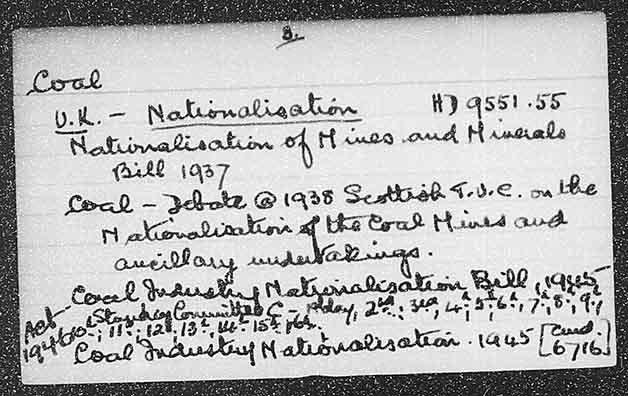 3.
Coal
U.K. - Nationalisation HD 9551.55
Nationalisation of Mines and Minerals
Bill 1937
Coal - Debate @ 1938 Scottish T.U.C. on the
Nationalisation of the Coal Mines and
ancillary undertakings.
Coal Industry Nationalisation Bill, 1945
Act 1946 Standing Committee C - 1st day, 2nd; 3rd; 4th; 5th; 6th; 7th; 8th; 9th;
10th; 11th; 12th; 13th; 14th; 15th
Coal Industry Nationalisation. 1945 [Cmd. 6716]